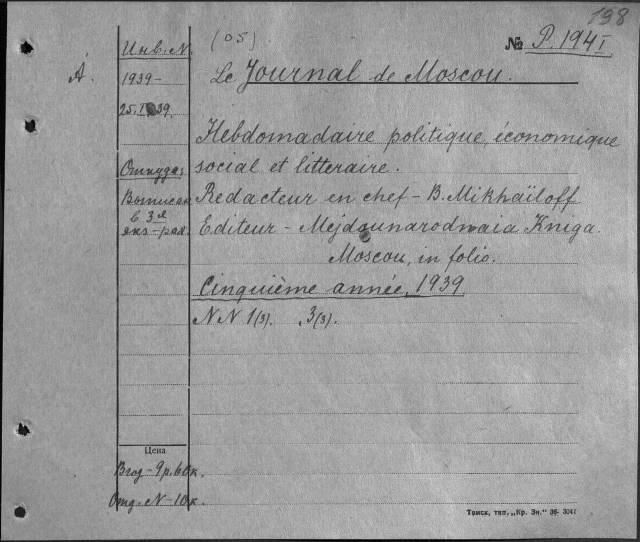 198
(05)
Инв. N.
№ P. 194I
А.
1939-
Le Journal de Moscou.
25.I 39.
Hebdomadaire politique, économique
Откуда:
social et litteraire.
Выписан
Redacteur en chef - B. Mikhaïloff
в 3я
экз-рах.
Editeur - Mejdounarodnaia Kniga.
Moscou, in folio.
Cinquième année, 1939
NN 1(3). , 3(3).
Цена
В год - 9 р. 60к.
Отд. N - 10к.
Томск, тип. „Кр. Зн." 36- 3041